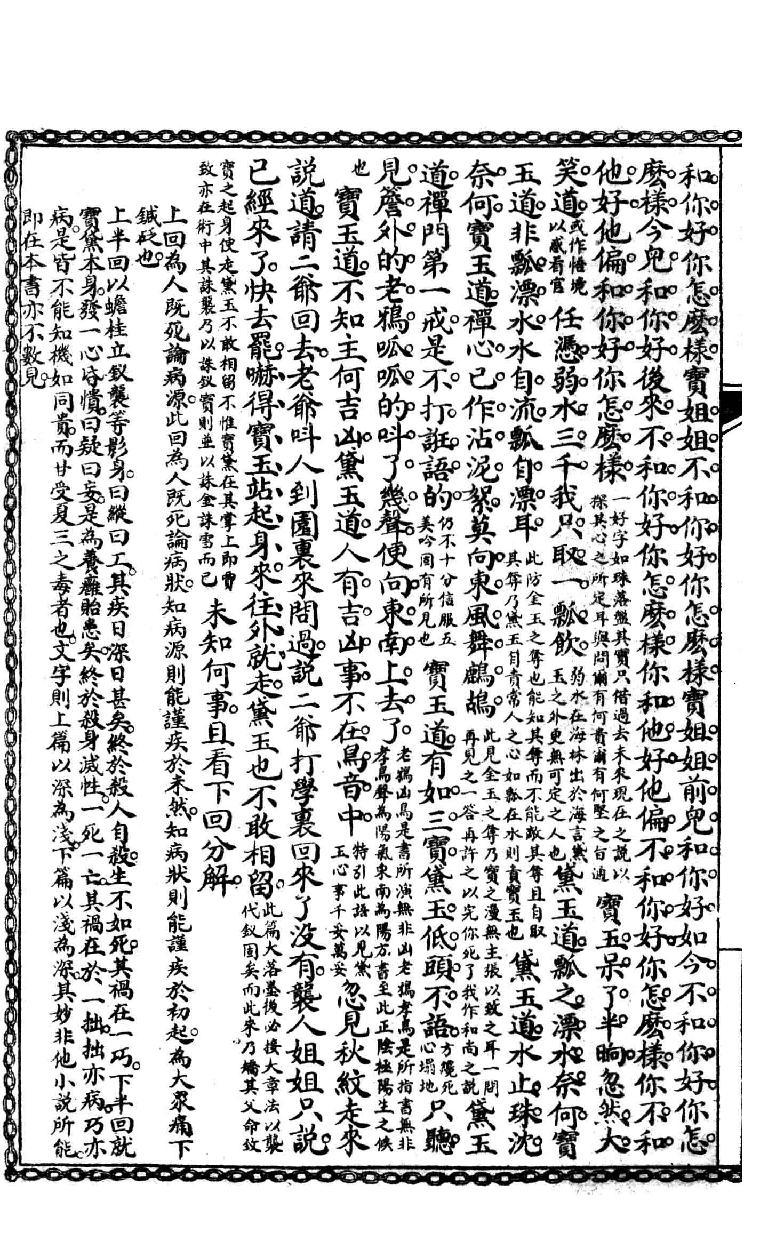 和你好你怎麽樣寶姐姐不和你好你怎麽樣寶姐姐前兒和你好如今不和你好你怎
麽樣今兒和你好後來不和你好你怎麽樣你和他好他偏不和你好你怎麽樣你不和
他好他偏和你好你怎麽樣一好字如珠落盤其實只借過去未來現在之說以探其心之所定耳與問爾有何貴爾有何堅之旨通寶玉呆了半晌忽然大
笑道或作悟境以感看官任憑弱水三千我只取一瓢飲弱水在海林出於海言黛玉之外更無可定之人也黛玉道瓢之漂水奈何寶
玉道非瓢漂水水自流瓢自漂耳此防金玉之奪也能如其奪而不能敵其奪且自取其奪乃黛玉自責常人之心如瓢在水則責寶玉也黛玉道水止珠沈
奈何寶玉道禪心已作沾泥絮莫向東風舞鷓鴣此見金玉之奪乃寶之漫無主張以致之耳一問再見之一答再許之以完你死了我作和尚之說黛玉
道禪門第一戒是不打誑語的仍不十分信服五美吟固有所見也寶玉道有如三寶黛玉低頭不語方纔死心塌地只聽
見簷外的老鴉呱呱的呌了幾聲便向東南上去了老鴉凶鳥是書所演無非凶老鴉孝鳥是所指書無非孝鳥聲為陽氣東南為陽方書至此正陰極陽生之候
也寶玉道不知主何吉凶黛玉道人有吉凶事不在鳥音中特引此語以見黛玉心事千妥萬妥忽見秋紋走來
説道請二爺回去老爺呌人到園裏來問過説二爺打學裏回來了没有襲人姐姐只説
已經來了快去罷嚇得寶玉站起身來往外就走黛玉也不敢相留此篇大落墨後必接大章法以襲代釵固矣而此來乃矯其父命致
寶之起身使走黛玉不敢相留不惟寶黛在其掌上即寶釵亦在術中其誅襲乃以誅釵寶則並以誅金誅雪而已未知何事且看下回分解
上回為人既死論病源此回為人既死論病狀知病源則能謹疾於未然知病狀則能謹疾於初起為大眾痛下
鍼砭也
上半回以蟾桂立釵襲等影身曰縱曰工其疾日深日甚矣終於殺人自殺生不如死其禍在一巧下半回就
寶黛本身發一心字憒曰疑曰妄是為養癰貽患矣終於殺身滅性一死一亡其禍在於一拙拙亦病巧亦
病是皆不能知機如同貴而甘受夏三之毒者也文字則上篇以深為淺下篇以淺為深其妙非他小説所能
即在本書亦不數見